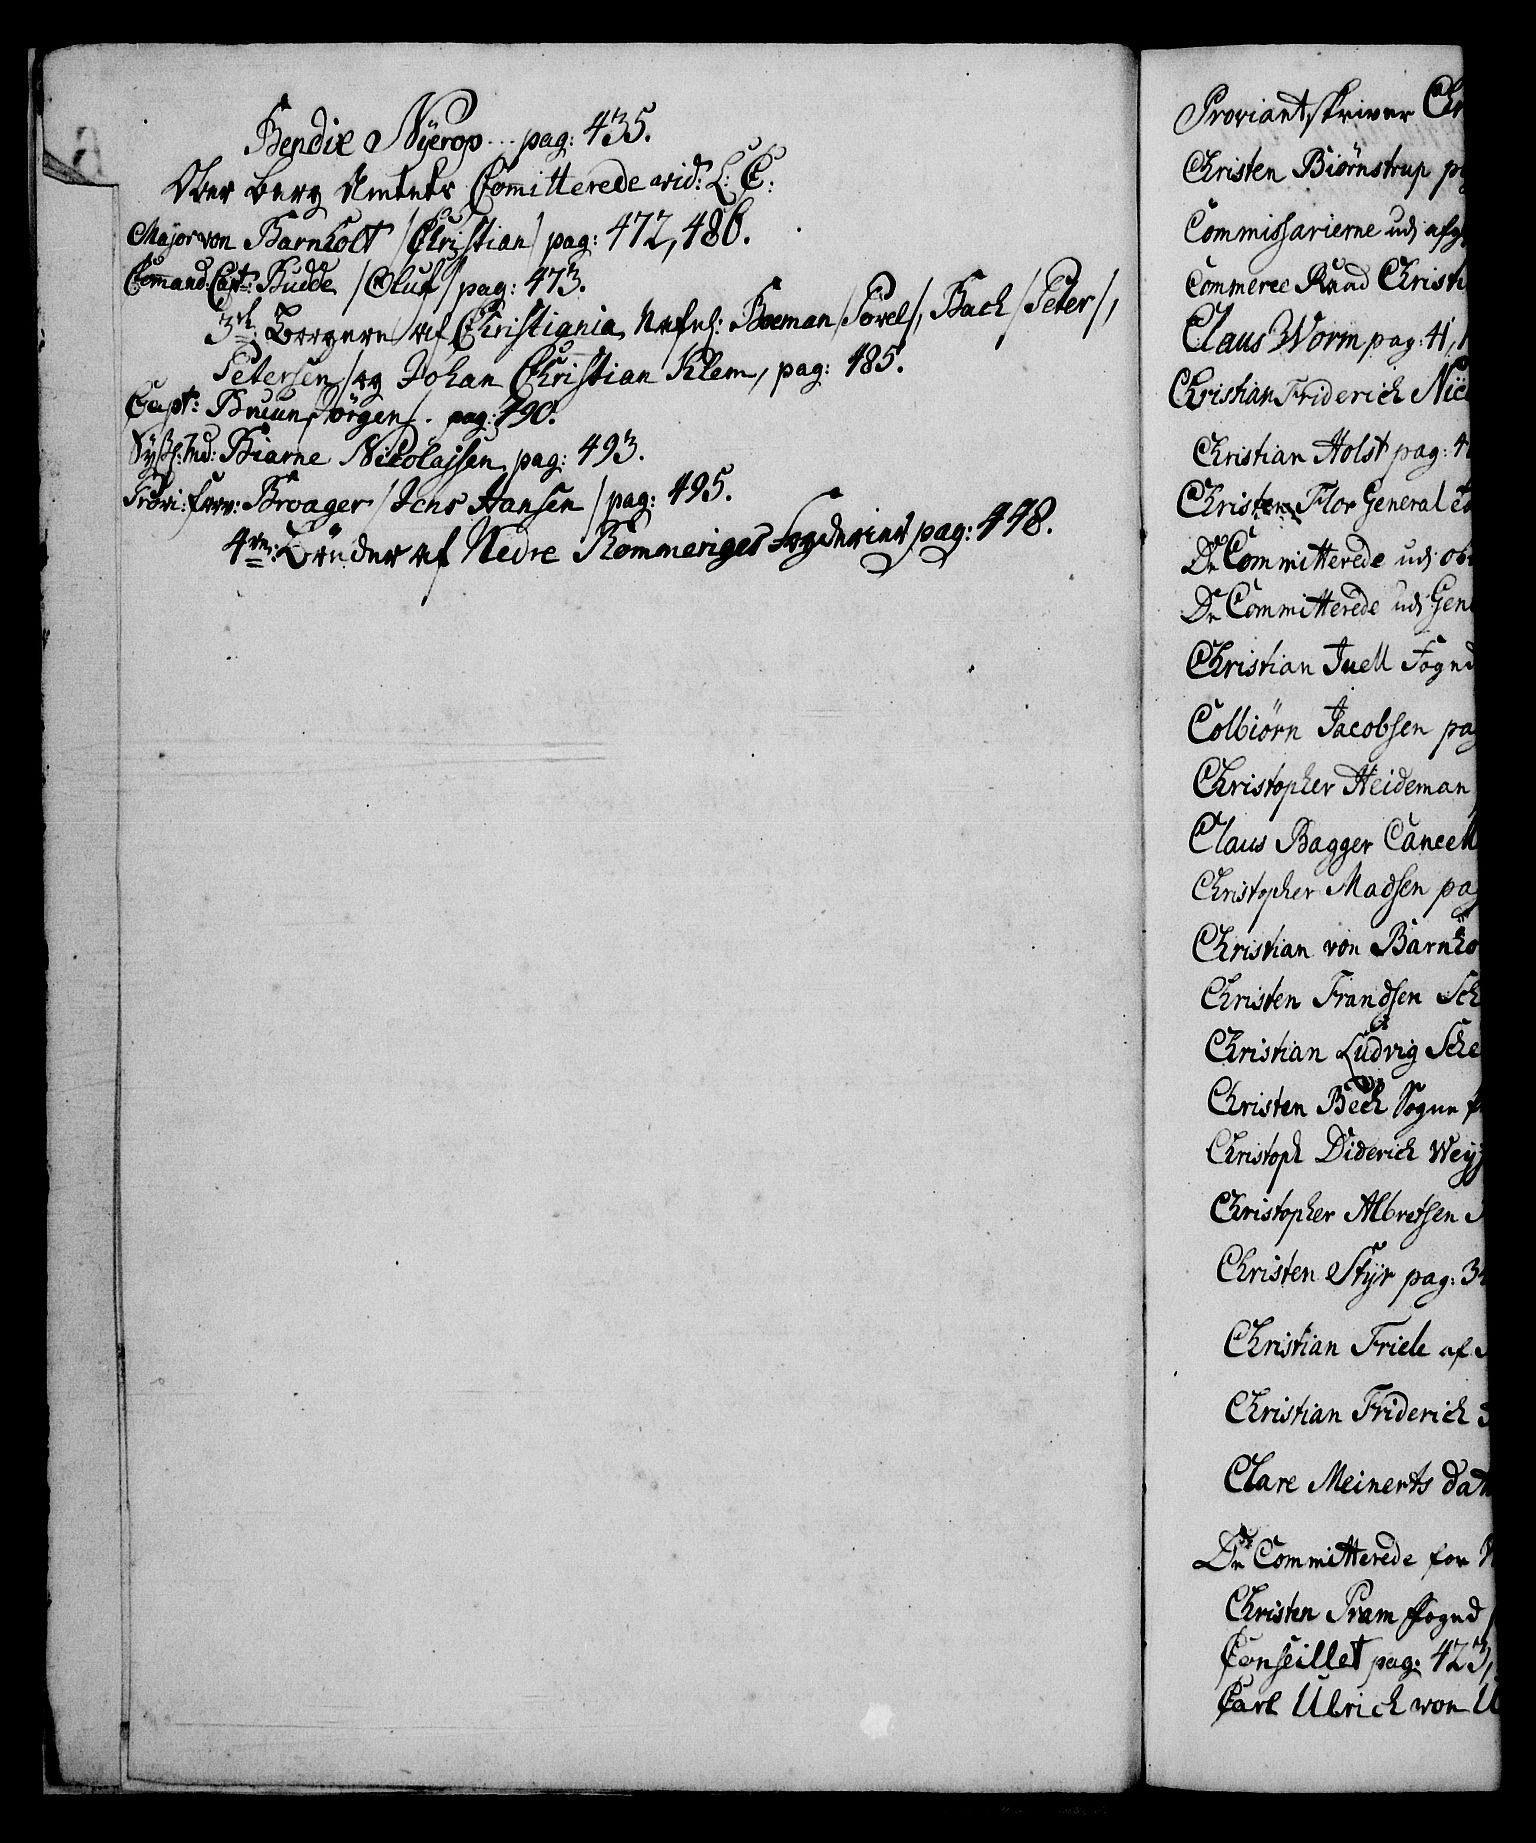 Bendix Nÿerop... pag: 435.
Ober berg Amtets Comitterede vid: L: C:
Major von Barnholt /Christian/ pag: 472, 486.
Comand: Capt: Budde /Oluf/ pag: 473.
3de Borgere af Christiania, Nafnl: Boeman /Povel/, Bach /Peter/,
Petersen, og Johan Christian Klem, pag: 485.
Capt: Bruun Jörgen. pag: 490.
Biarne Nicolajsen, pag: 493.
Provi: forv: Broager /Jens Hansen/ pag: 495.
4re Bönder af Nedre Rommeriges Fogderie pag: 448.
Proviantskriver Chr
Christen Biörnstrup pag
Commissarierne udj afg
Commerce Raad Christi
Claus Worm pag: 41,
Christian Friderich Nie
Christian Holst pag: 4
Christen Flor General
De Committerede udj ob
De Committerede udj Gene
Christian Juell Fogd
Colbiörn Jacobsen pag
Christopher Heideman
Claus Bagger Cancell
Christopher Madsen pag
Christian von Barnho
Christen Frandsen Sch
Christian Ludvig Sche
Christen Bech Sogne p
Christoph Diderich Weyg
Christopher Albretsen
Christen Stÿr pag: 34
Christian Friele af
Christian Friderich
Clare Meinerts dat
De Committerede for
Christen Pram Fogd
Conseillet pag: 423,
Carl Ulrich von